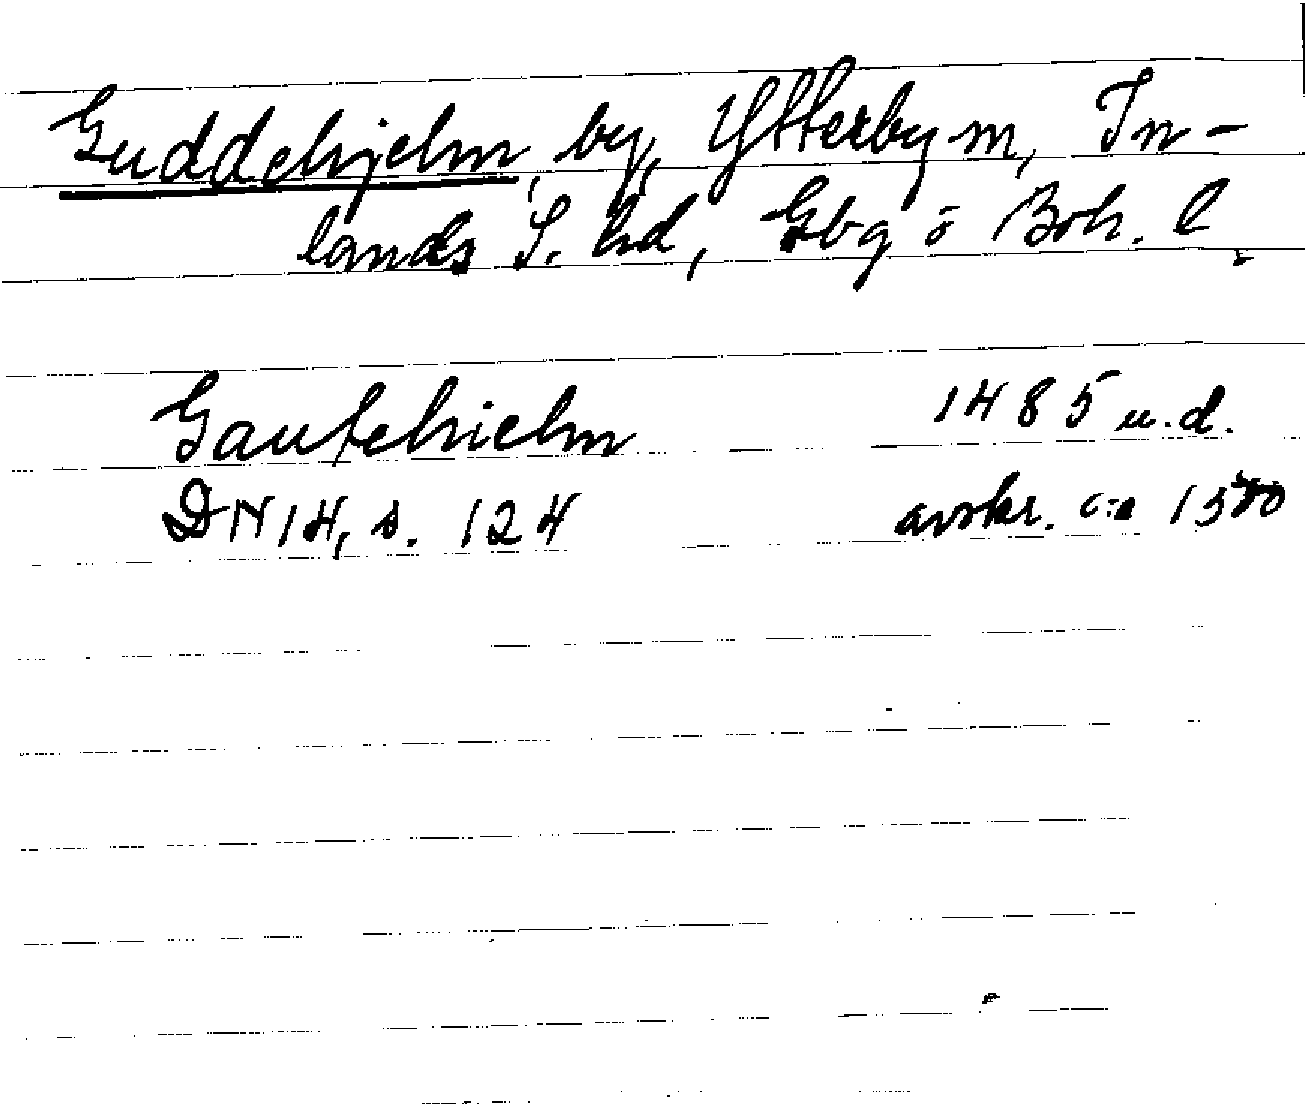 Guddehjelm, by, Ytterby sn, In-
lands S. hd, Gbg o Boh. l.
Gautehielm 1485 u.d.
DN 14, s. 124 avskr. ca 1500